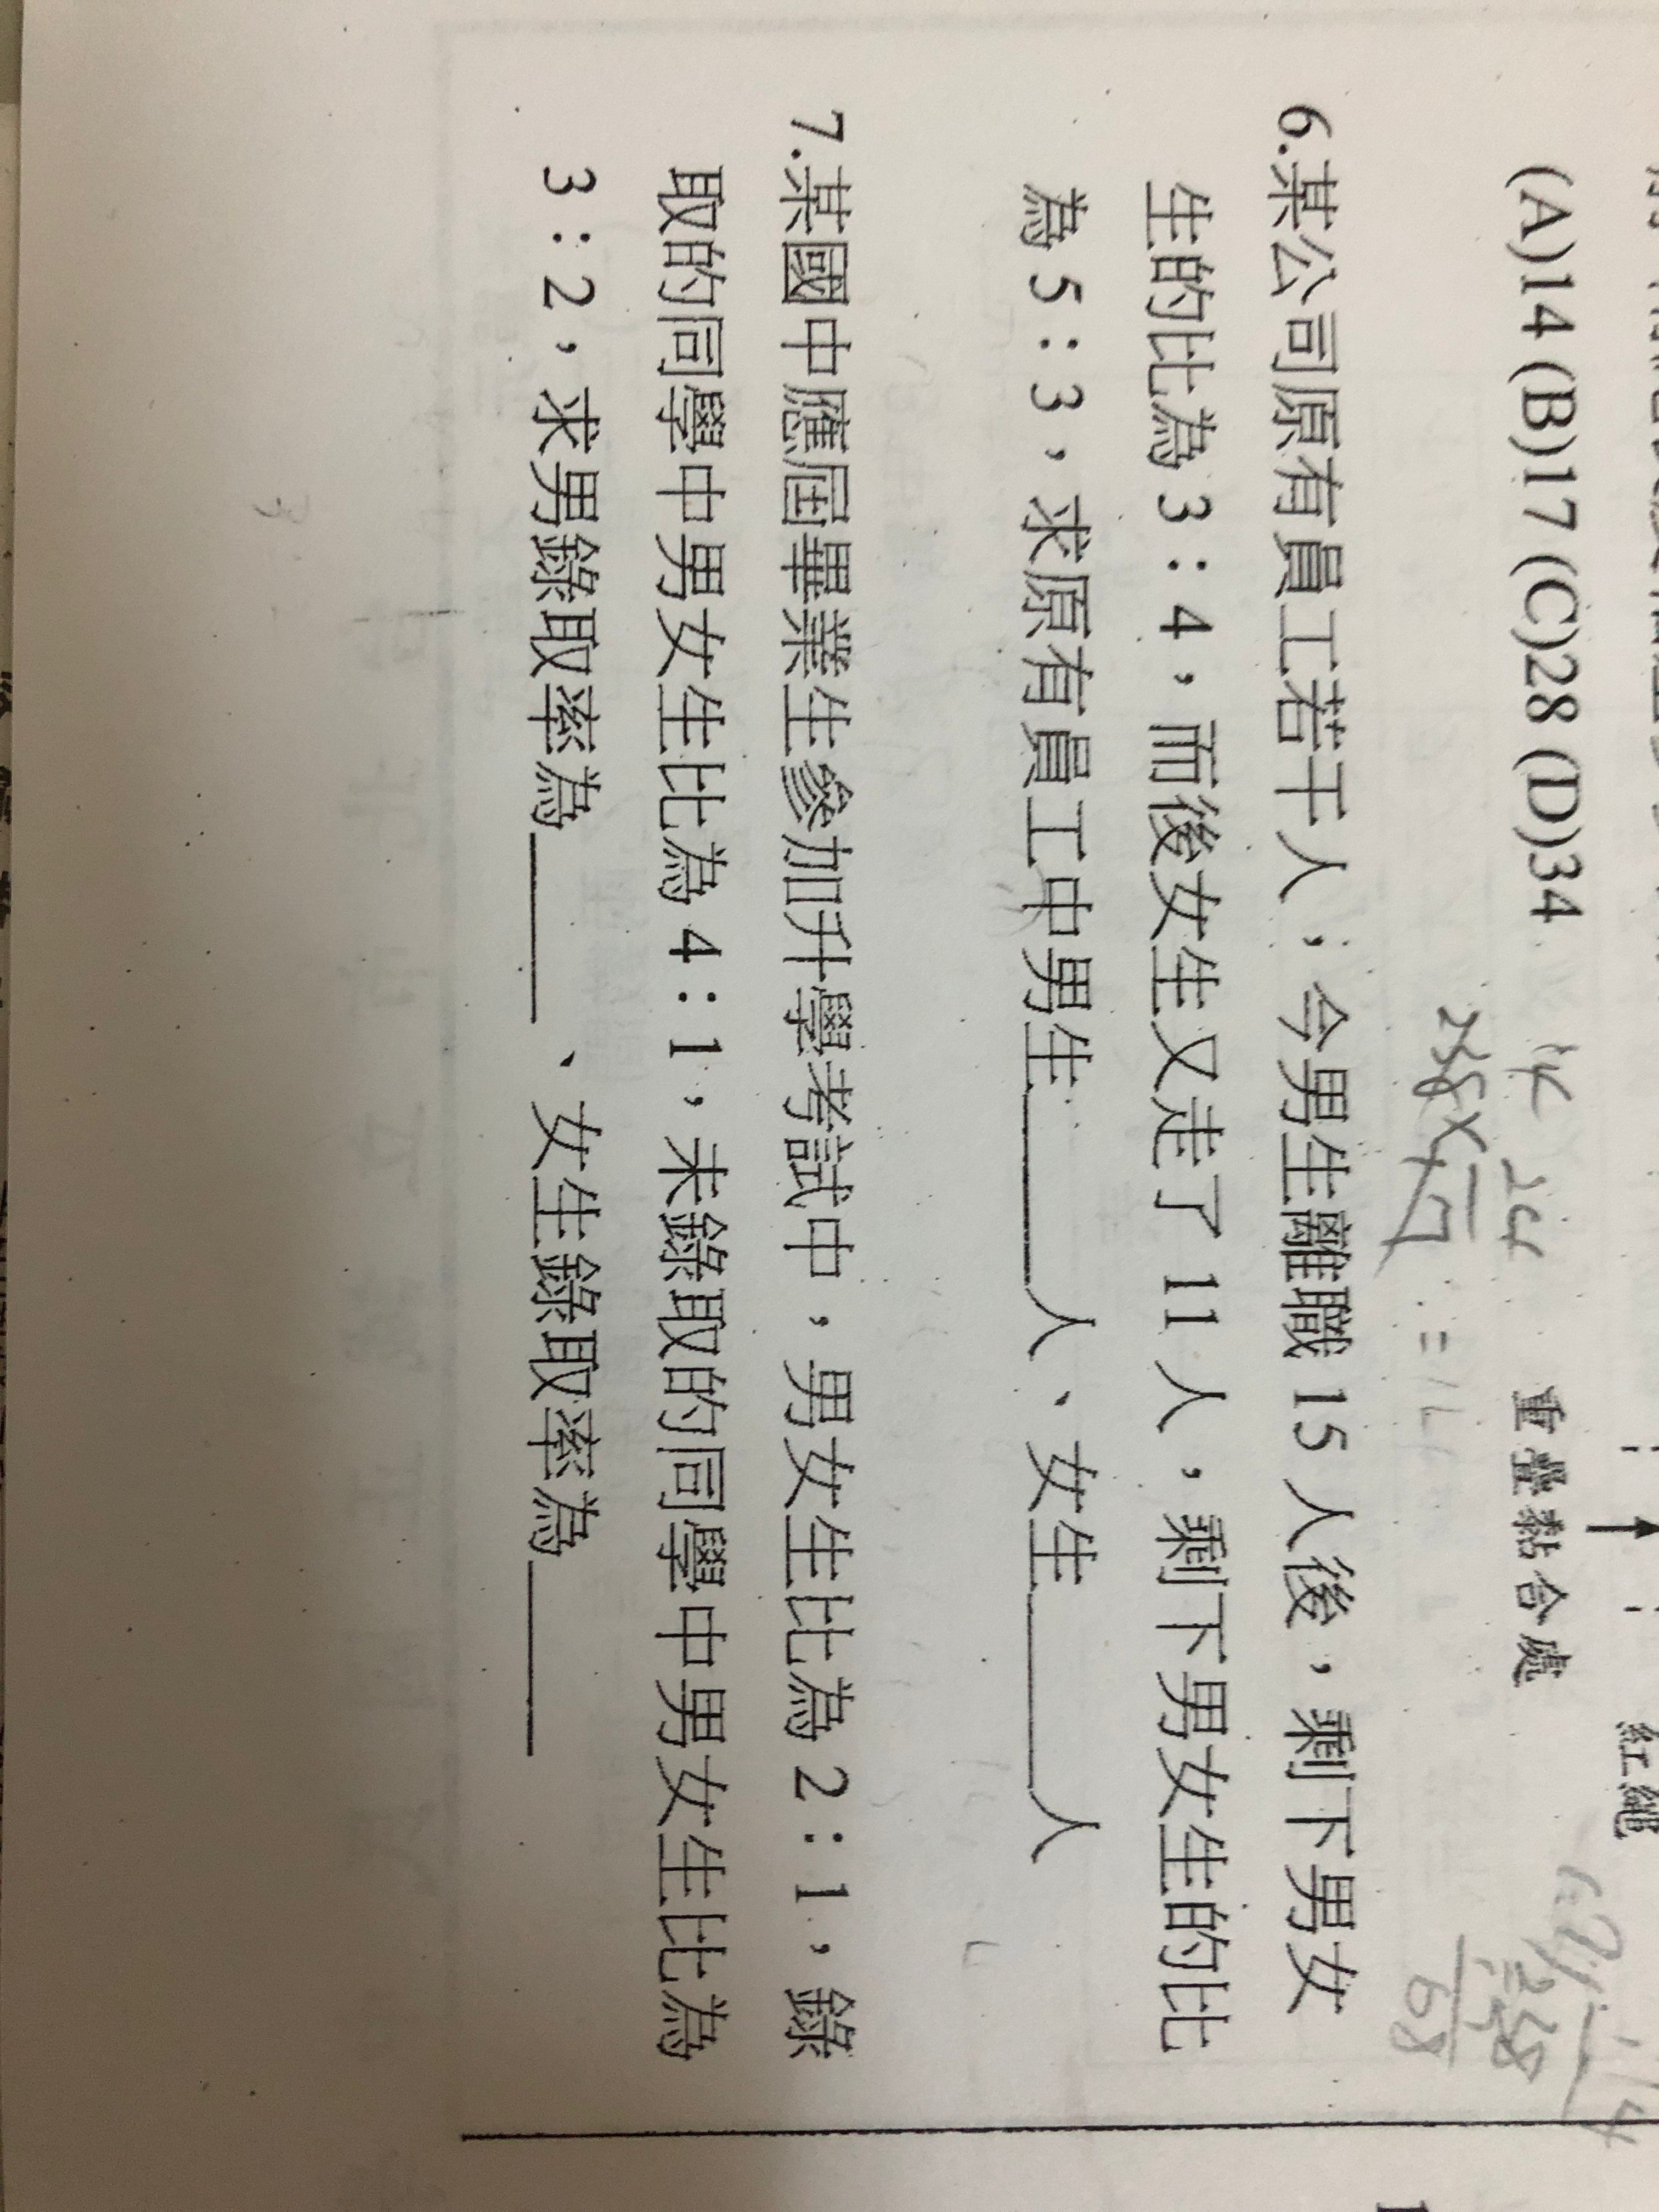 紅繩
重疊黏合處
(A)14 (B)17 (C)28 (D)34
6.某公司原有員工若干人；今男生離職 15 人後，剩下男女
生的比為 3：4，而後女生又走了 11 人，剩下男女生的比
為 5：3，求原有員工中男生______人、女生______人
7.某國中應屆畢業生參加升學考試中，男女生比為 2：1，錄
取的同學中男女生比為 4：1，未錄取的同學中男女生比為
3：2，求男錄取率為______、女生錄取率為______